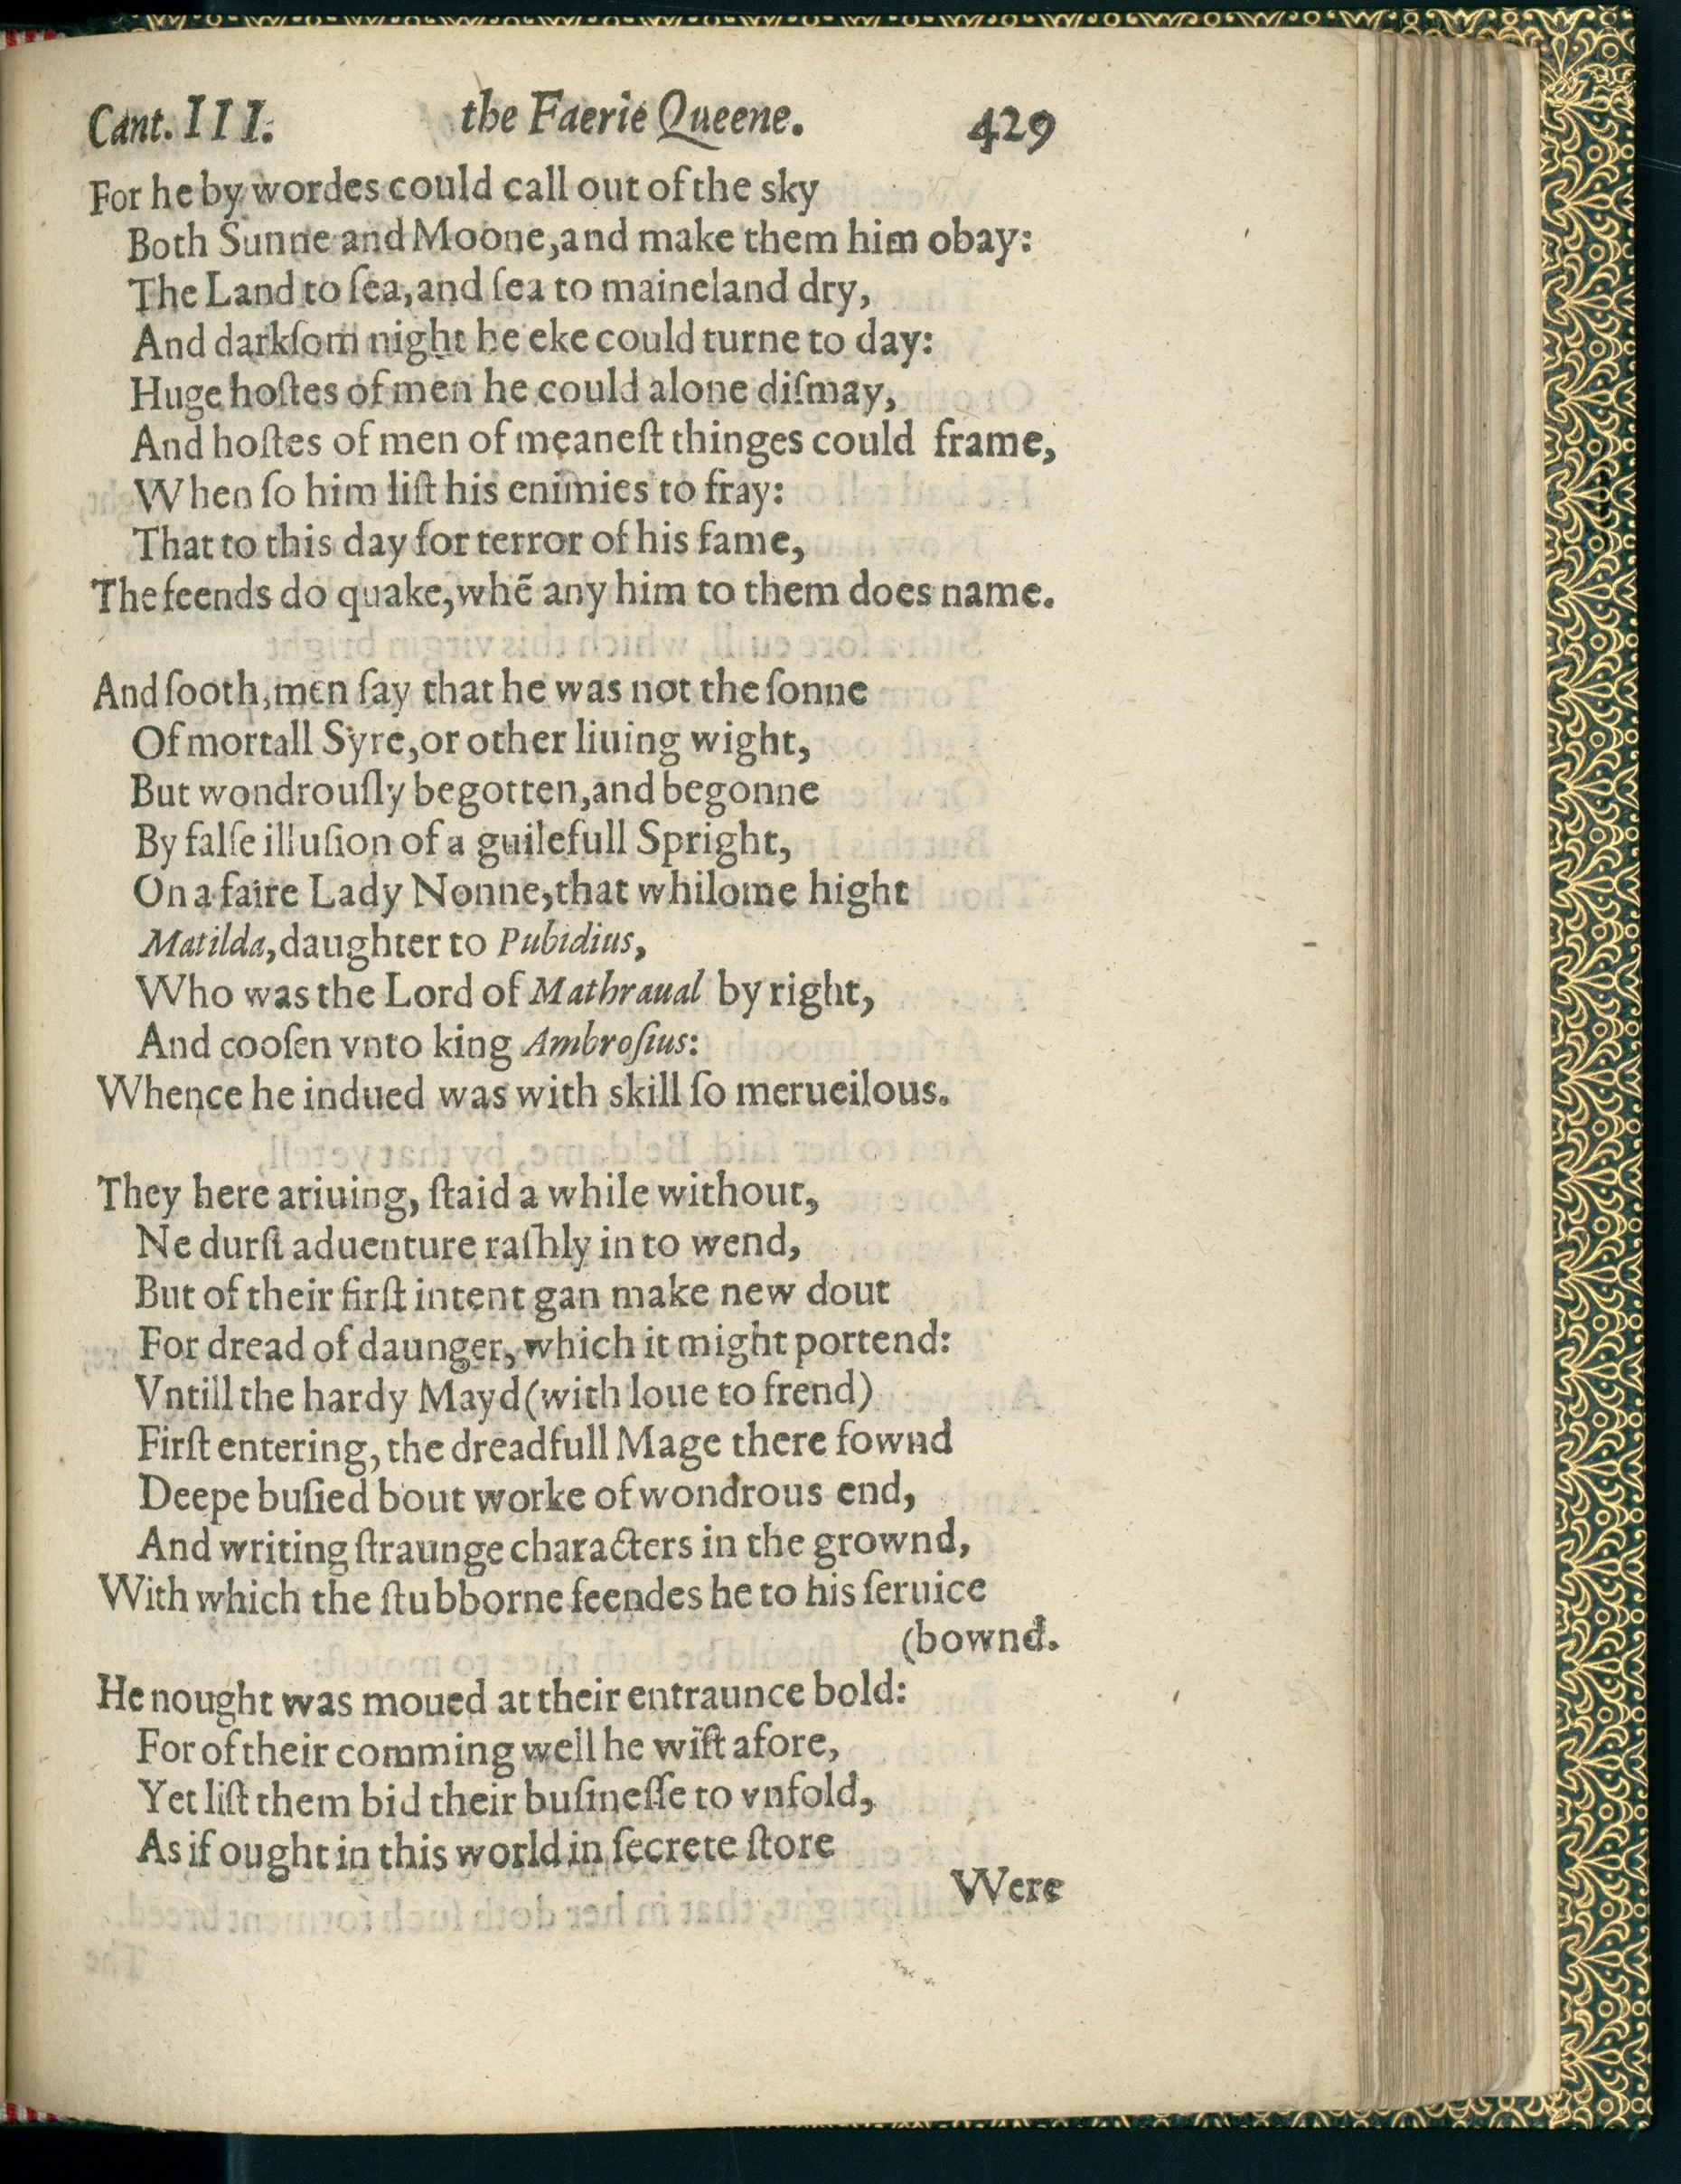 Cant. III. the Faerie Queene. 429
For he by wordes could call out of the sky
Both Sunne and Moone, and make them him obay:
The Land to ſea, and ſea to maineland dry,
And darkſom night he eke could turne to day:
Huge hoſtes of men he could alone diſmay,
And hoſtes of men of meaneſt thinges could frame,
When ſo him liſt his enimies to fray:
That to this day for terror of his fame,
The feends do quake, whẽ any him to them does name.
And ſooth, men ſay that he was not the ſonne
Of mortall Syre, or other liuing wight,
But wondrouſly begotten, and begonne
By falſe illuſion of a guilefull Spright,
On a faire Lady Nonne, that whilome hight
Matilda, daughter to Pubidius,
Who was the Lord of Mathraual by right,
And cooſen vnto king Ambroſius:
Whence he indued was with skill ſo merueilous.
They here ariuing, ſtaid a while without,
Ne durſt aduenture raſhly in to wend,
But of their firſt intent gan make new dout
For dread of daunger, which it might portend:
Vntill the hardy Mayd (with loue to frend)
Firſt entering, the dreadfull Mage there fownd
Deepe buſied bout worke of wondrous end,
And writing ſtraunge characters in the grownd,
With which the ſtubborne feendes he to his ſeruice
(bownd.
He nought was moued at their entraunce bold:
For of their comming well he wiſt afore,
Yet liſt them bid their buſineſſe to vnfold,
As if ought in this world in ſecrete ſtore
Were